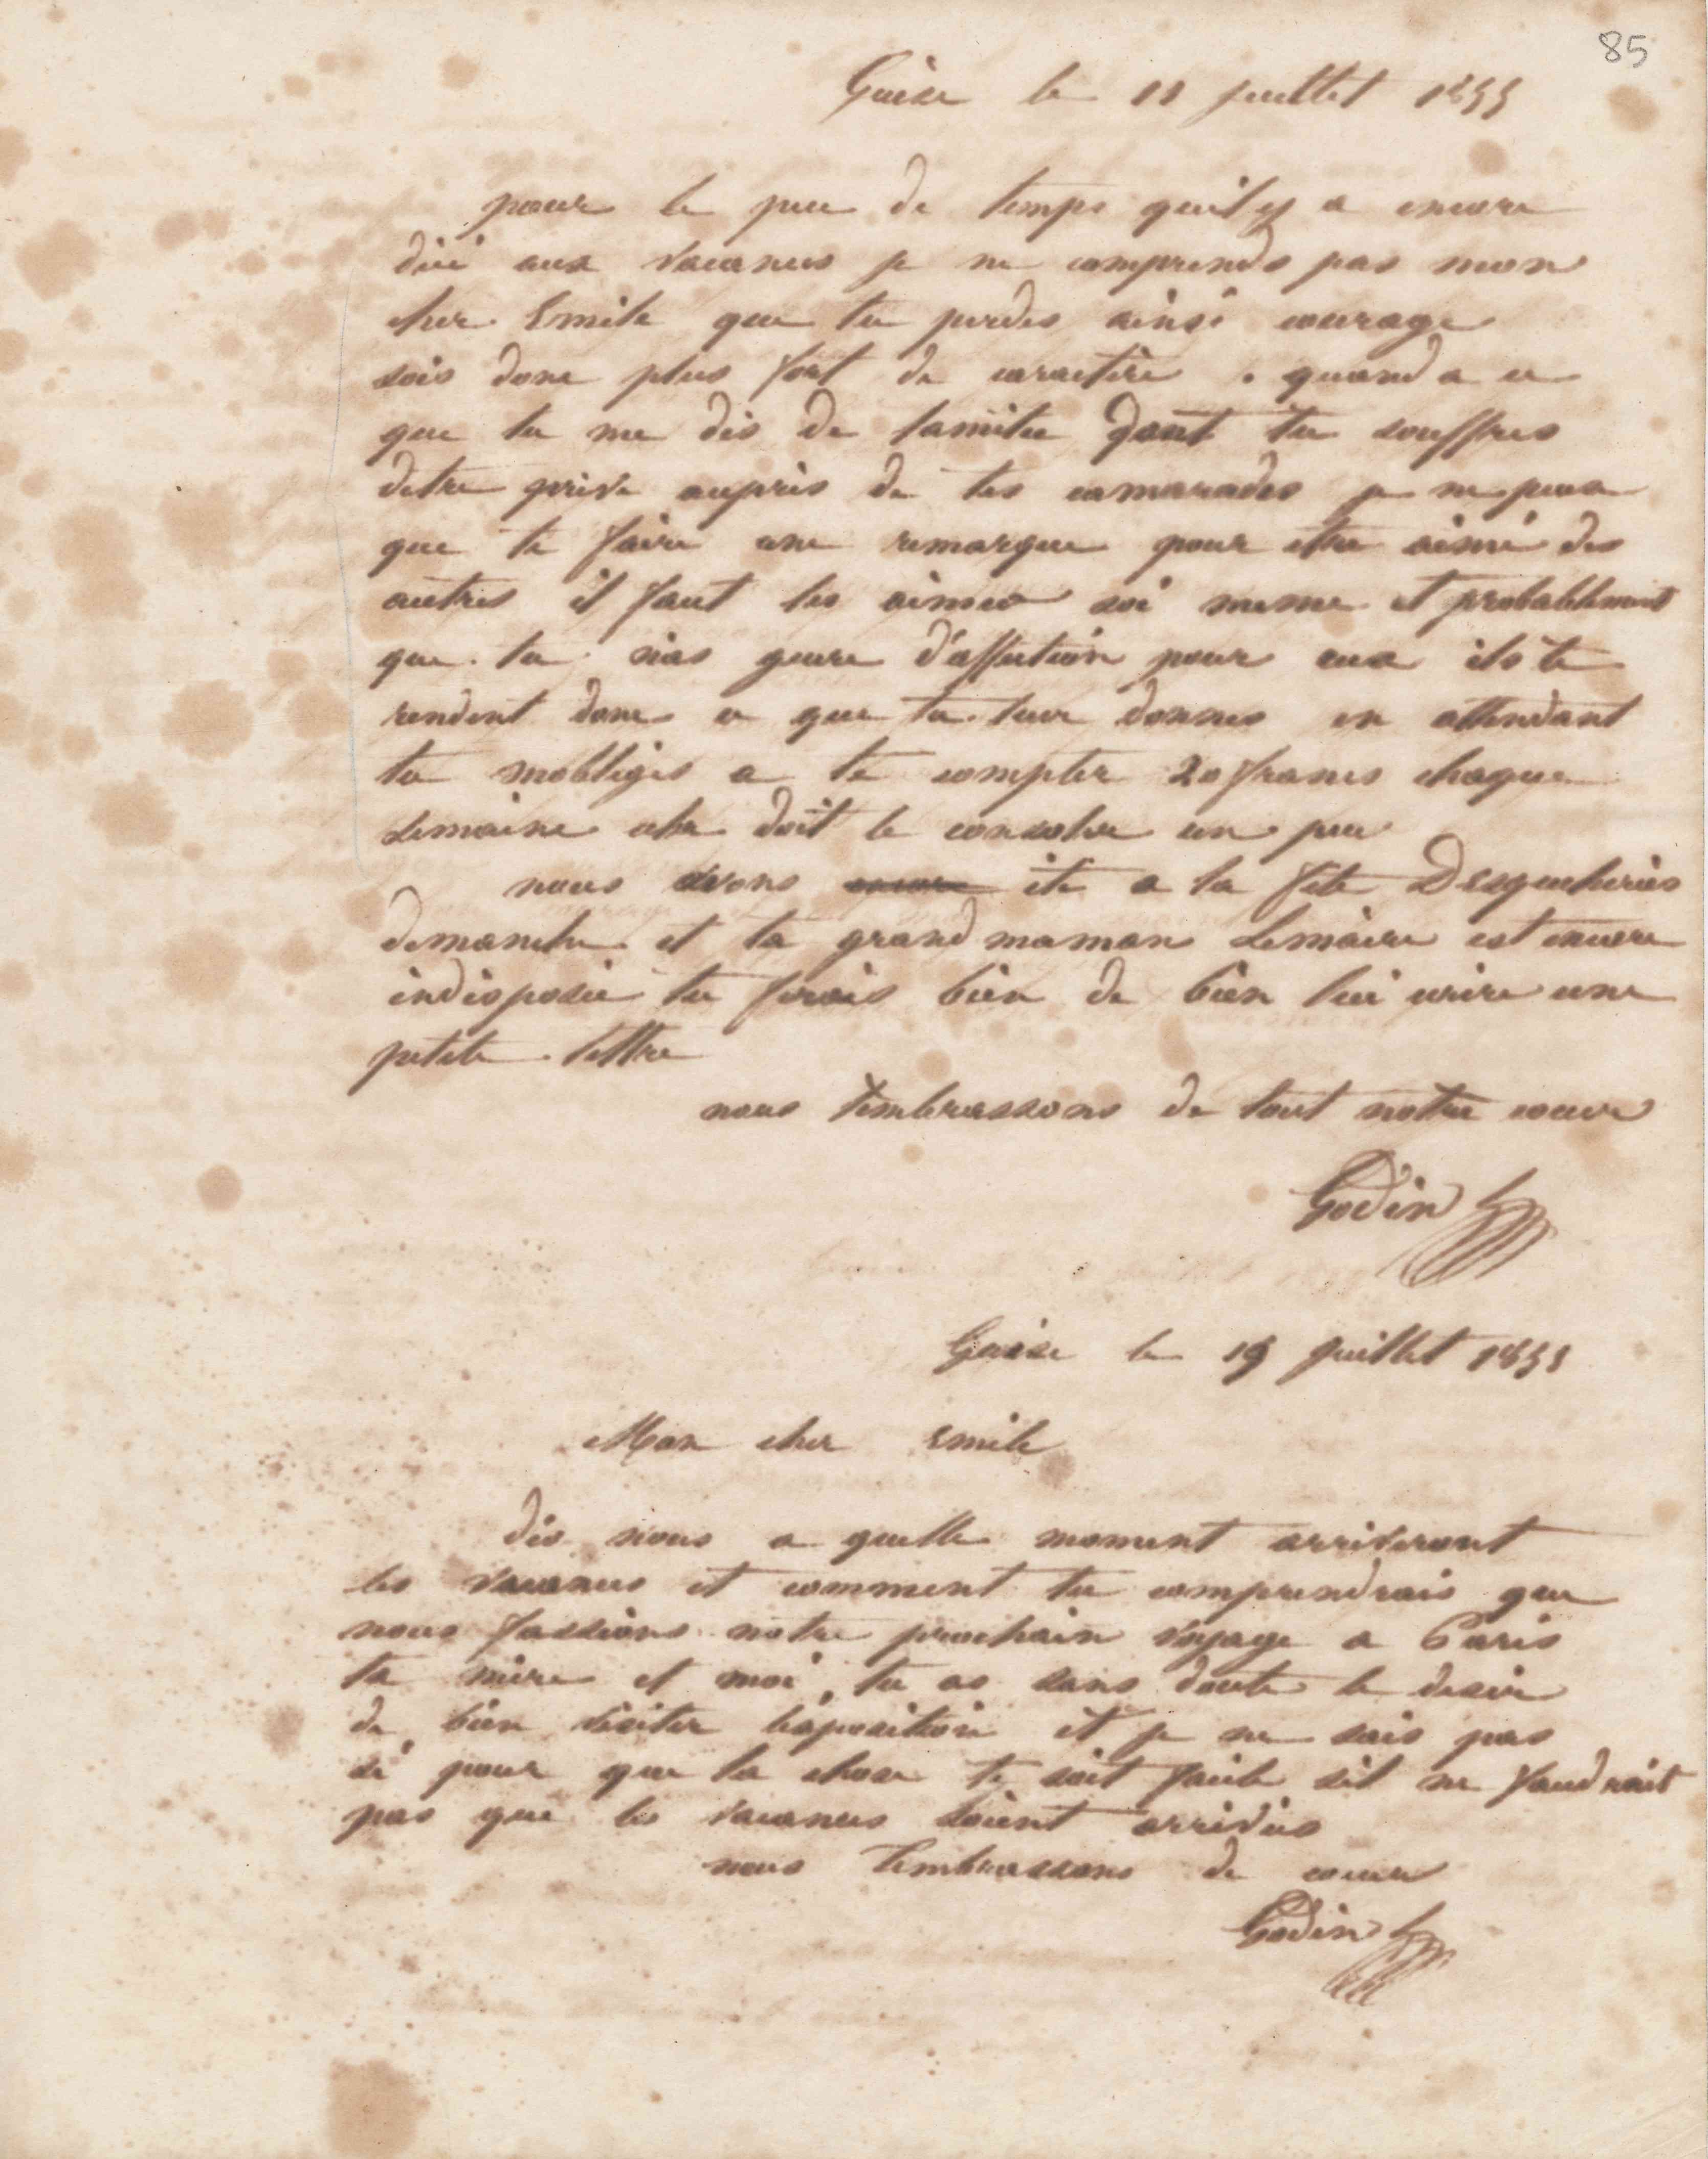 85
Guise le 11 juillet 1855
pour le peu de temps quil y a encore
dici aux vacances je ne comprends pas mon
cher Emile que tu perdes ainsi courage
sois donc plus fort de caractère . quand a ce
que tu me dis de lamitie dont tu souffres
detre privé auprès de tes camarades je ne peux
que te faire une remarque pour etre aimé des
autres il faut les aimer soi meme et probablement
que tu nas guere d'affection pour eux ils te
rendent donc ce que tu leur donnes en attendant
tu mobliges a te compter 20 francs chaque
semaine cela doit te consoler un peu
nous avons encore été a la fete Desqueheries
dimanche et ta grand maman Lemaire est encore
indisposée tu ferais bien de bien lui ecrire une
petite lettre
nous tembrassons de tout notre coeur
Godin
Guise le 19 juillet 1855
Mon cher Emile
dis nous a quelle moment arriveront
les vacances et comment tu comprendrais que
nous fassions notre prochain voyage a Paris
ta mère et moi, tu as sans doute le desir
de bien visiter lexposition et je ne sais pas
si pour que la chose te soit facile sil ne faudrait
pas que les vacances soient arrivées
nous tembrassons de coeur
Godin